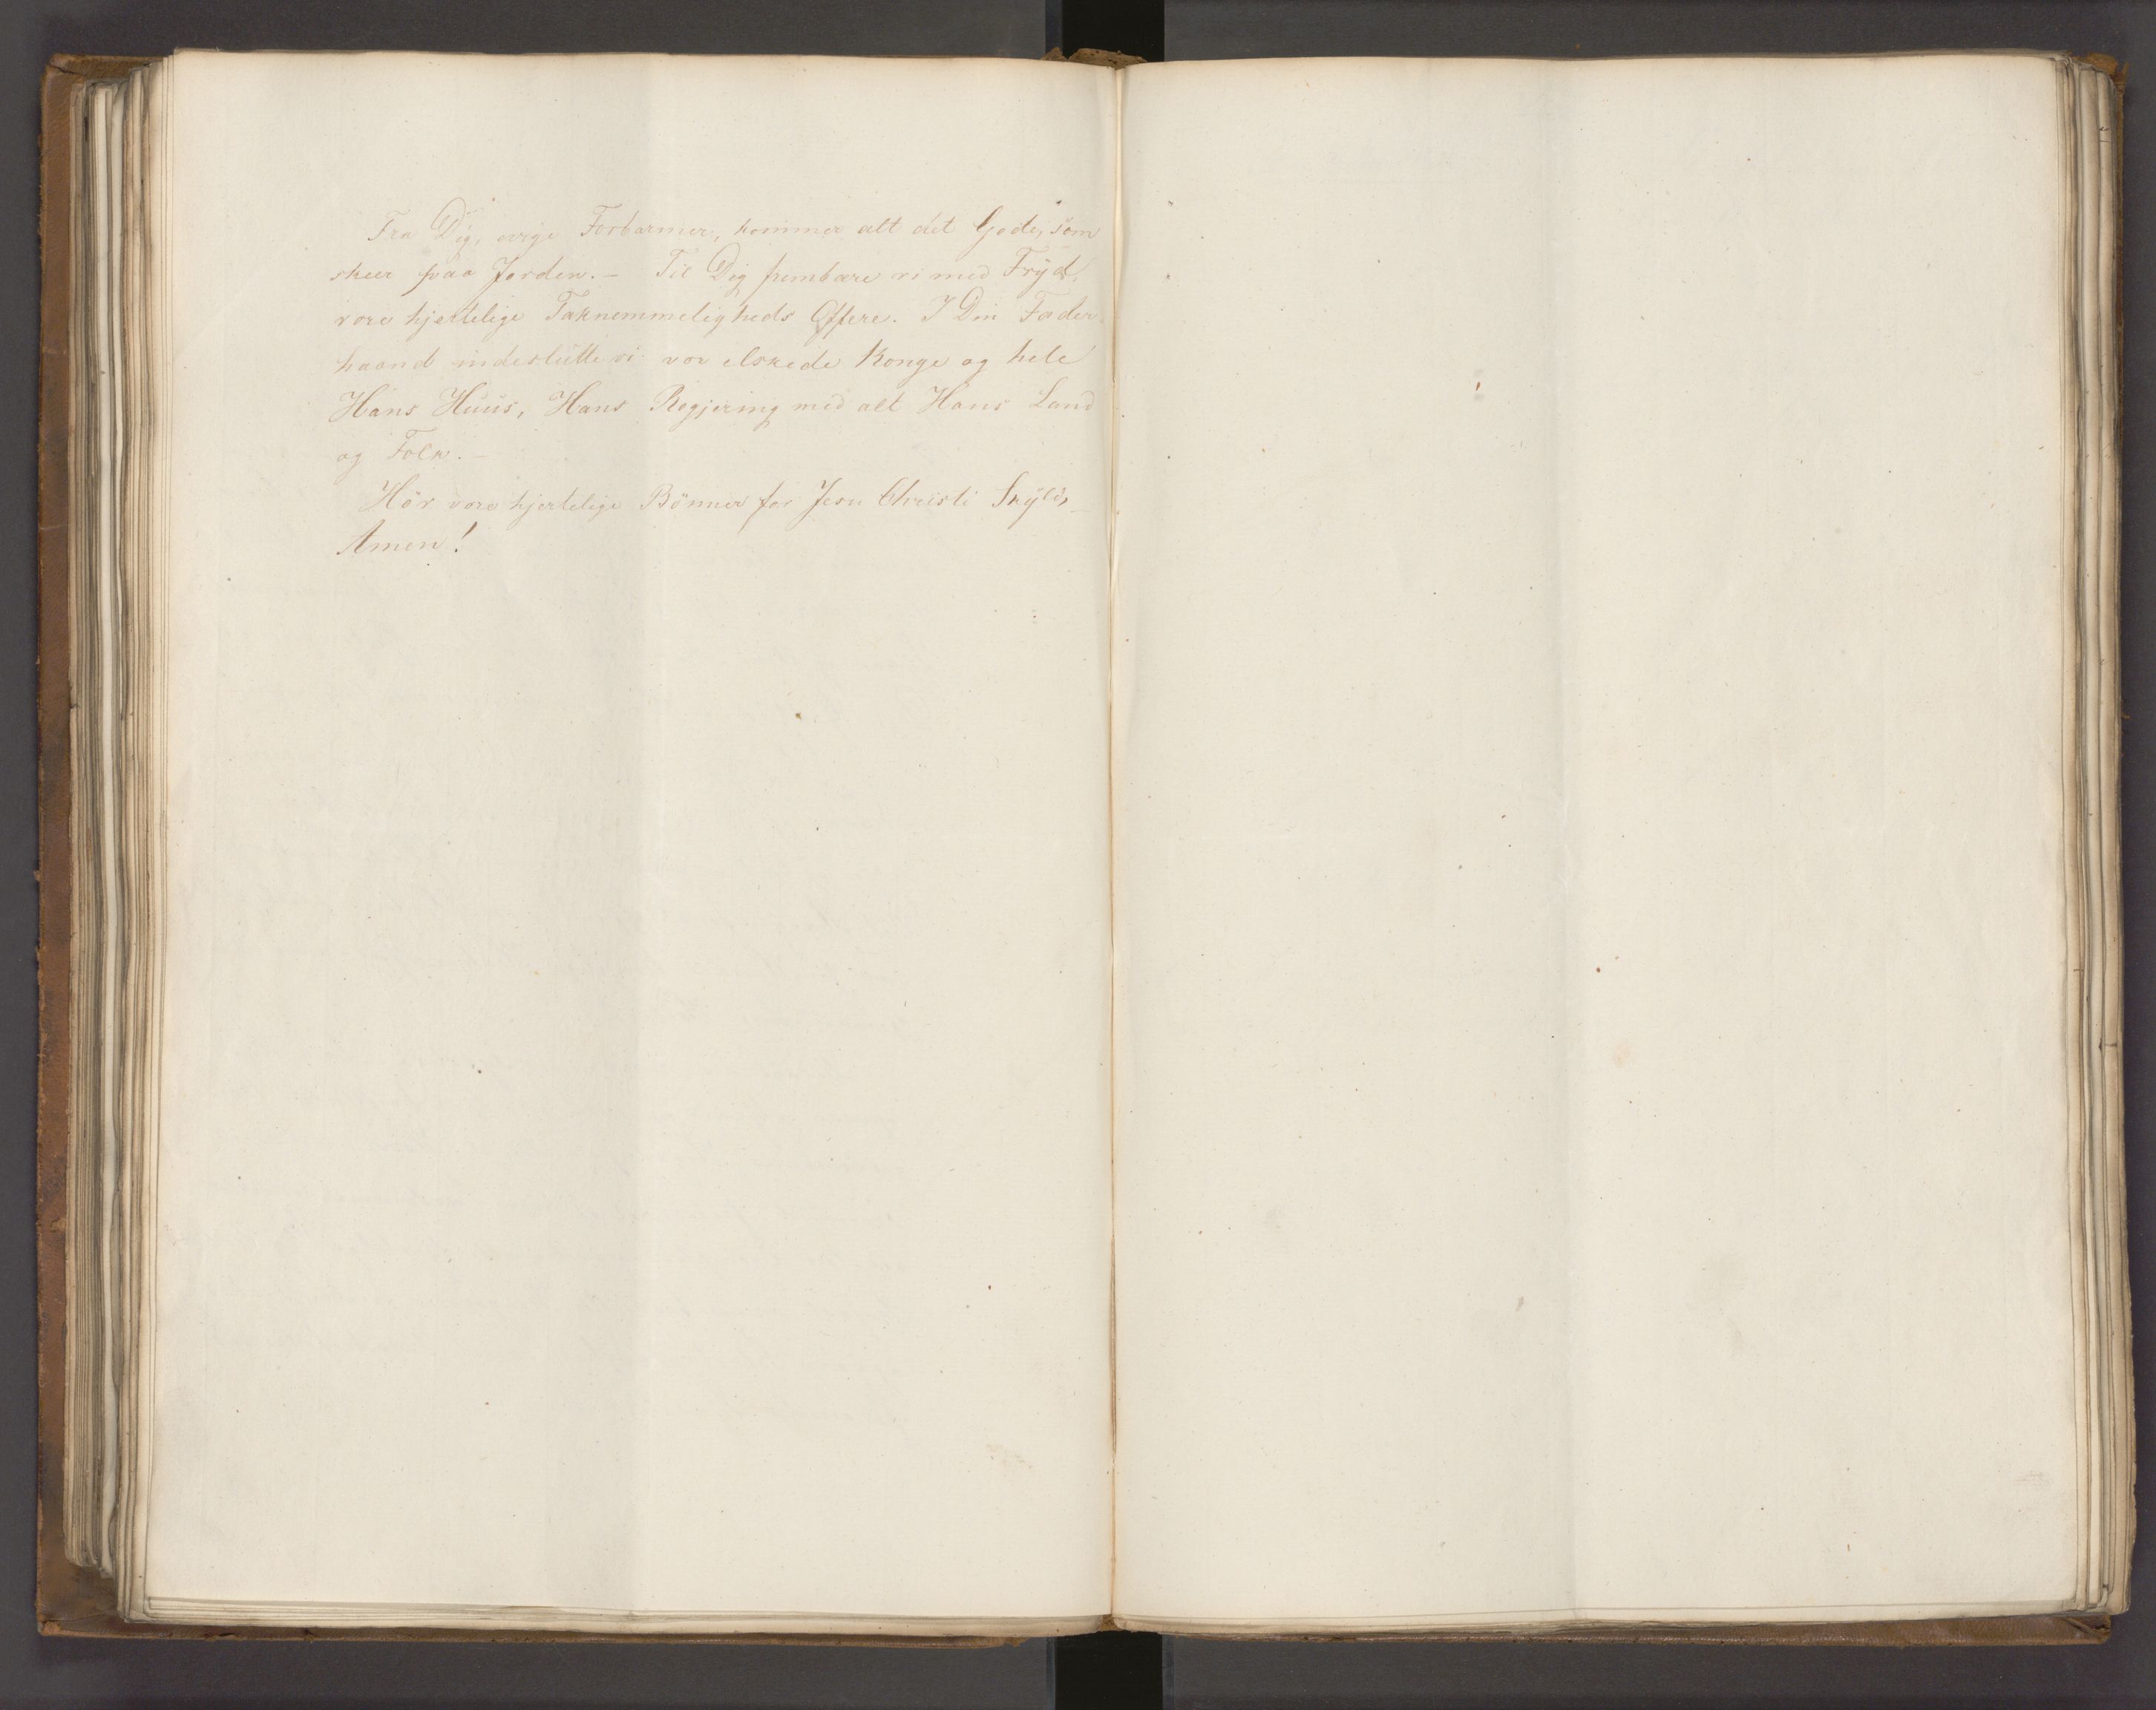 Fra Dig, evige Forbarmer, kommer alt det Gode, som
skeer paa Jorden. – Til Dig frembære vi med Fryd
vore hjertelige Taknemmeligheds Offere. I Din Fader-
haand indeslutte vi vor elskede Konge og hele
Hans Huus, Hans Regjering med alt Hans Land
og Folk. –
Hör vore hjertelige Bönner for Jesu Christi Skyld,
Amen!